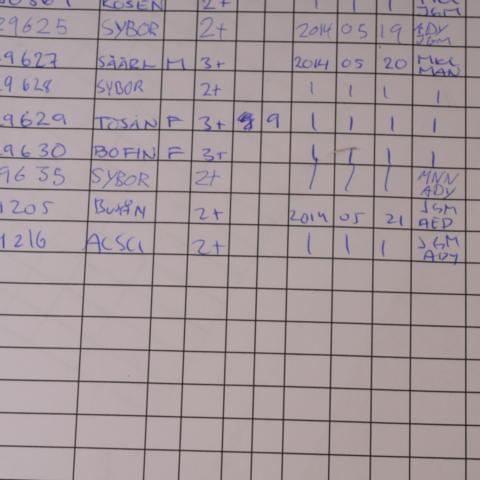 ROSEN 2+ JGM
29625 SYBOR 2+ 2014 05 19 ADY JGM
29627 SÄÄRL M 3+ 2014 05 20 MKL MAN
29628 SYBOR 2+ | | | |
29629 TOSÄN F 3+ 9 | | | |
29630 BOFIN F 3+ | | | |
29635 SYBOR 2+ | | | MNN ADY
1205 BUSÄN 2+ 2014 05 21 JGM AED
1216 ACSCI 2+ | | | JGM ADY